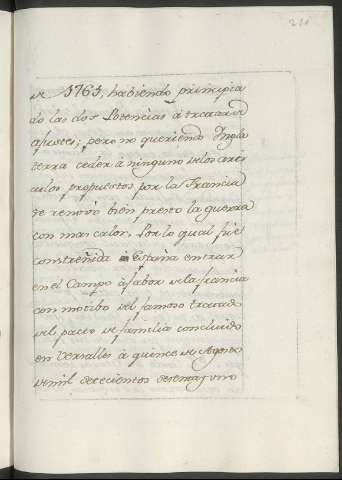 de 1761, habiendo principia
do las dos Potencias à tratar de
ajustes; pero no queriendo Ingla
terra ceder à ninguno de los arti
culos propuestos por la Francia
se renovò bien presto la guerra
con mas calor. Por lo qual fuè
constreñida España entrar
en el Campo à fabor de la francia
con motibo del famoso tratado
del pacto de familia concluido
en Versalles à quince de Agosto
de mil setecientos sesenta y uno